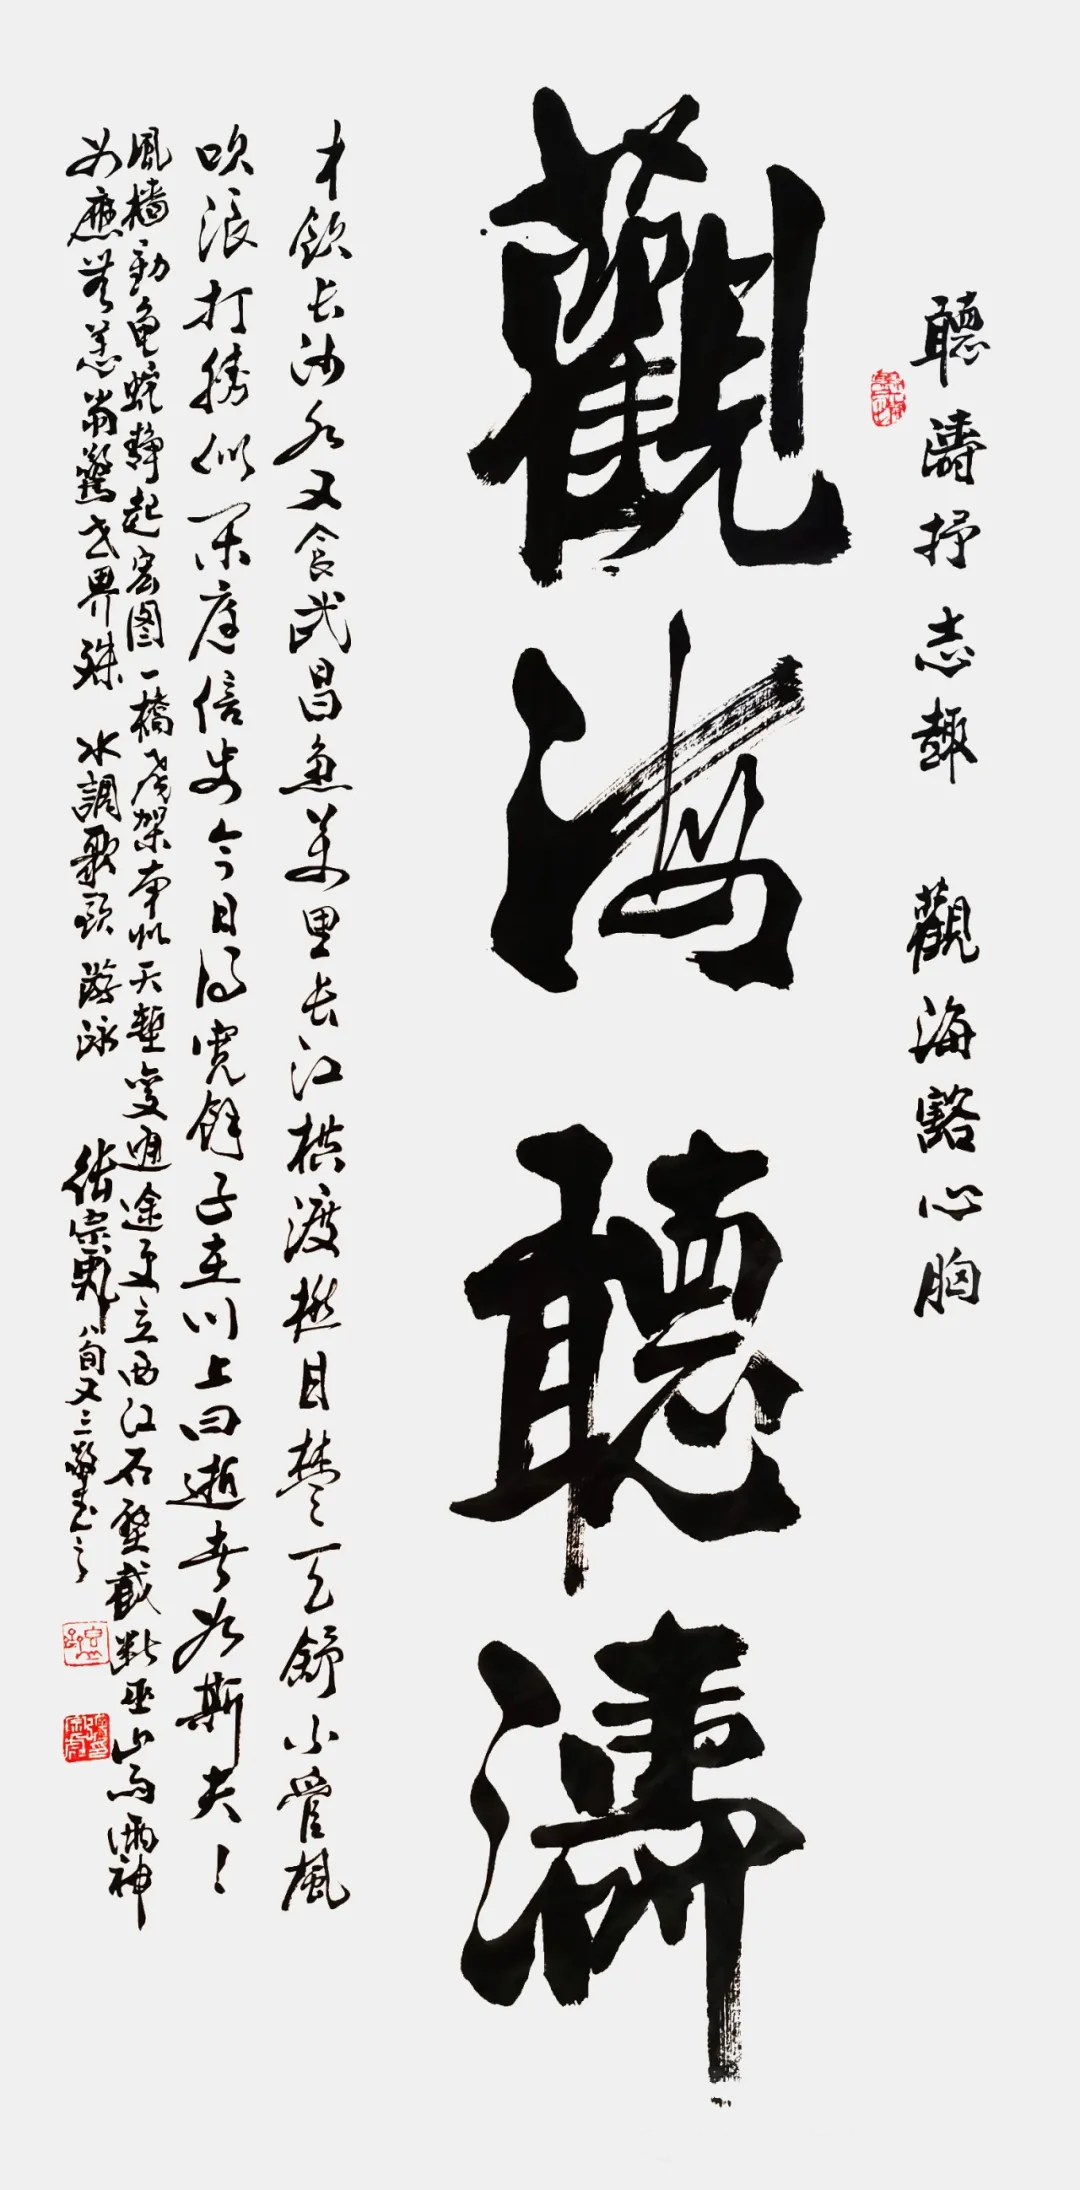 聽濤抒志趣 觀海豁心胸
觀海聽濤
才飲长沙水又食武昌魚萬里长江横渡极目楚天舒不管風
吹浪打勝似闲庭信步今日得宽餘子在川上曰逝者如斯夫
風樯動龟蛇静起宏图一橋飛架南北天塹变通途更立西江石壁截斷巫山雲雨神
女應無恙當驚世界殊 水調歌頭 游泳 八旬又三敬書之